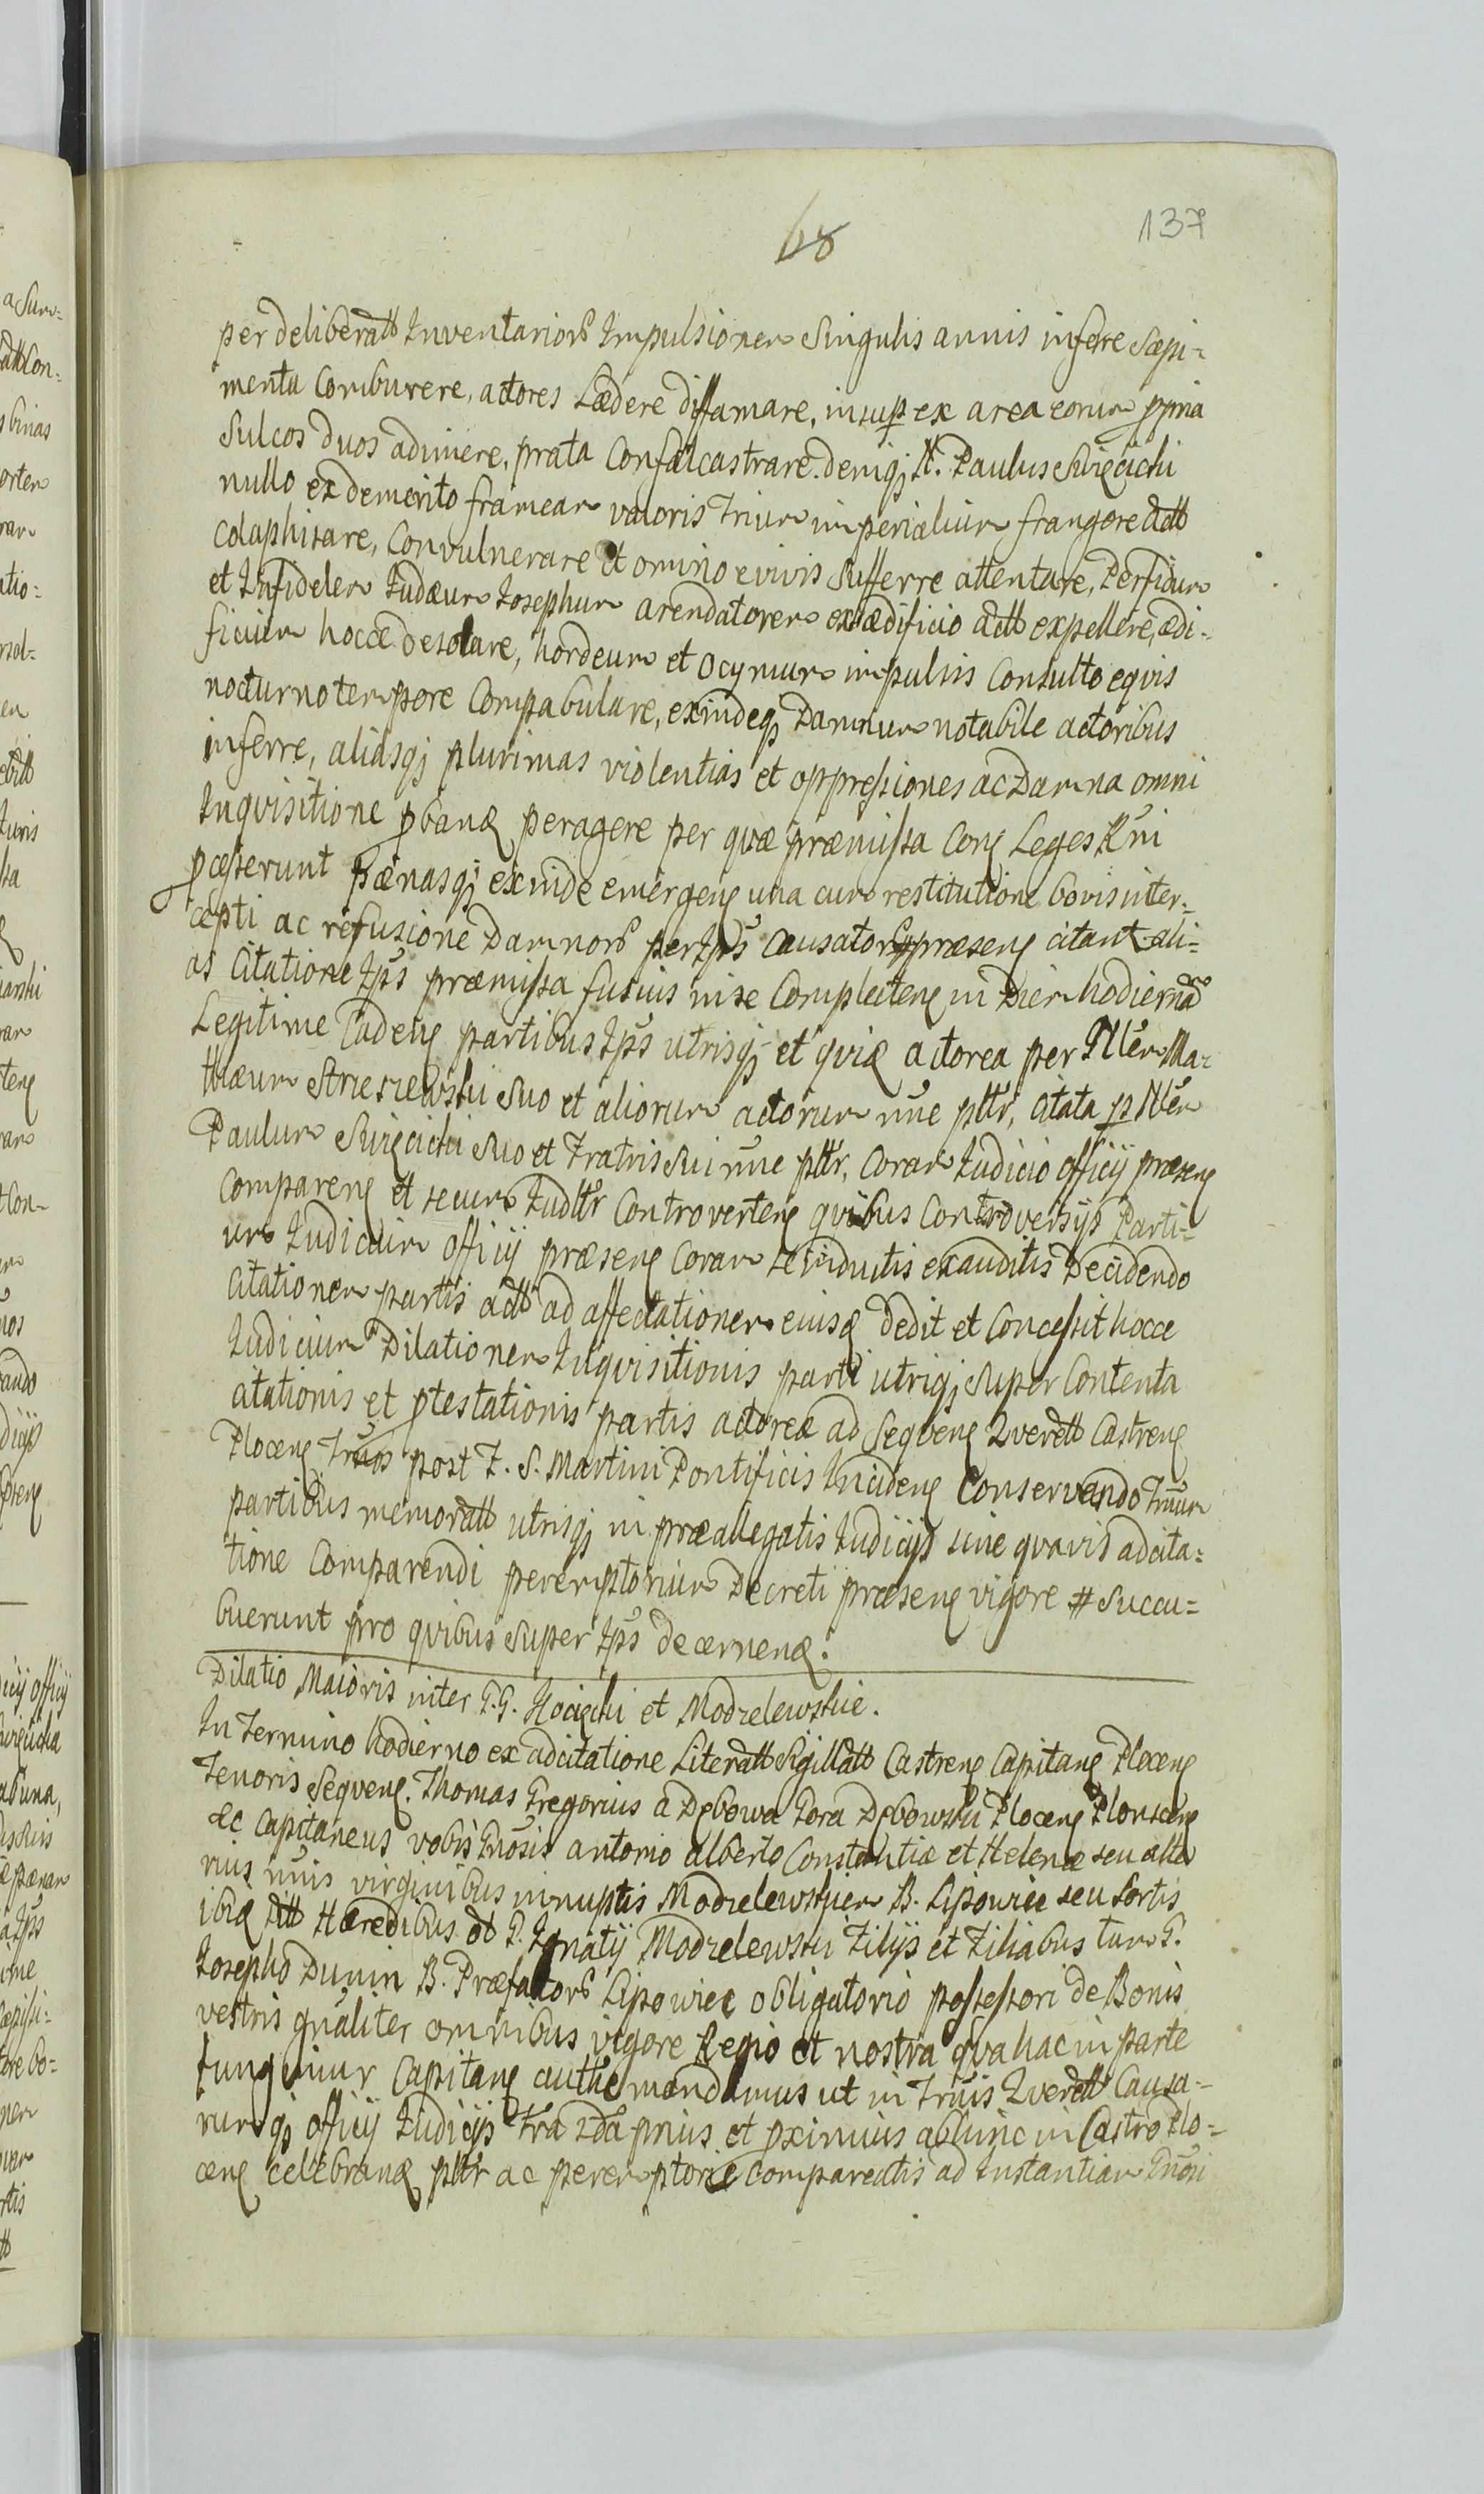 137
68
per deliberatt Inventariorb Impulsionem Singulis annis inferre Sæpi=
menta Comburere, actores Lædere diffamare, insup ex area eorum ppria
Sulcos duos adimere, prata Confalcastrare. deniqj N. Paulus Swięcicki
nullo ex demerito frameam valoris Trium imperialium frangere actt
Colaphisare, Convulnerare et omnino e vivis Sufferre attentare, Perfidum
et Infidelem Judæum Josephum arendatorem ex ædificio actt expellere, ædi-
ficium hocce desolare, hordeum et ocymum in pulsis Consulto eqvis
nocturno tempore Compabulare, exindeqj Damnum notabile actoribus
inferre, aliasqj plurimas violentias et oppressiones ac Damna omni
Inqvisitione pband peragere per qvæ præmissa Con Leges Rni
pcesserunt Pænasqj exinde emergen una cum restitutione bovis inter=
cepti ac refusione Damnorb per Ips Causator præsen citant ali=
as Citatione Ips præmissa fusius in se Complecten in Diem hodiernã
Legitime Caden partibus Ips utrisqj et qvia actorea per Nlem Ma-
thæum Strzeszewski Suo et aliorum actorum nne pltr, citata p Nlem
Paulum Swięcicki Suo et Fratris Sui nne pltr, Coram Judicio Officij præsen
Comparen et secum Judltr Controverten qvibus Controversijs Parti-
um Judicium officij præsen Coram se inductis exauditis Decidendo
Citationem partis actt ad affectationem eiusd dedit et Concessit hocce
Judicium Dilationem Inqvisitionis parti utriqj Super Contenta
citationis et ptestationis partis actoreæ ad Seqven Qverett Castren
Plocen Trnos post F. S. Martini Pontificis Inciden Conservando Trnum
partibus memoratt utrisqj in præallegatis Judicijs sine qvavis adcita=
tione Comparendi peremptorium Decreti præsen vigore # Succu=
buerunt pro qvibus Super Ips decernend.
Dilatio Maioris inter G.G. Hocięcki et Modzelewskie.
In Termino hodierno ex adcitatione Literatt Sigillatt Castren Capitan Plocen
Tenoris Seqven. Thomas Gregorius a Dębowa Gora Dębowski Plocen Plonscen
&c Capitaneus vobis Gnosis Antonio Alberto Constantiæ et Helenæ seu alte
rius nnis virginibus innuptis Modzelewskiem B. Lipowiec seu Sortis
ibid Ditt Hæredibus ol G. Ignatij Modzelewski Filijs et Filiabus tum G.
Josepho Dunin B. Præfatorb Lipowiec obligatorio possessori de Bonis
vestris gnaliter omnibus vigore Regio et nostra qva hac in parte
fungimur Capitan authe mandamus ut in Trnis Qverett Causa-
rumqj officij Judicijs Fra 2da prius et pximius abhinc in Castro Plo-
cen celebrand pltr ac peremptorie compareatis ad Instantiam Gnosi